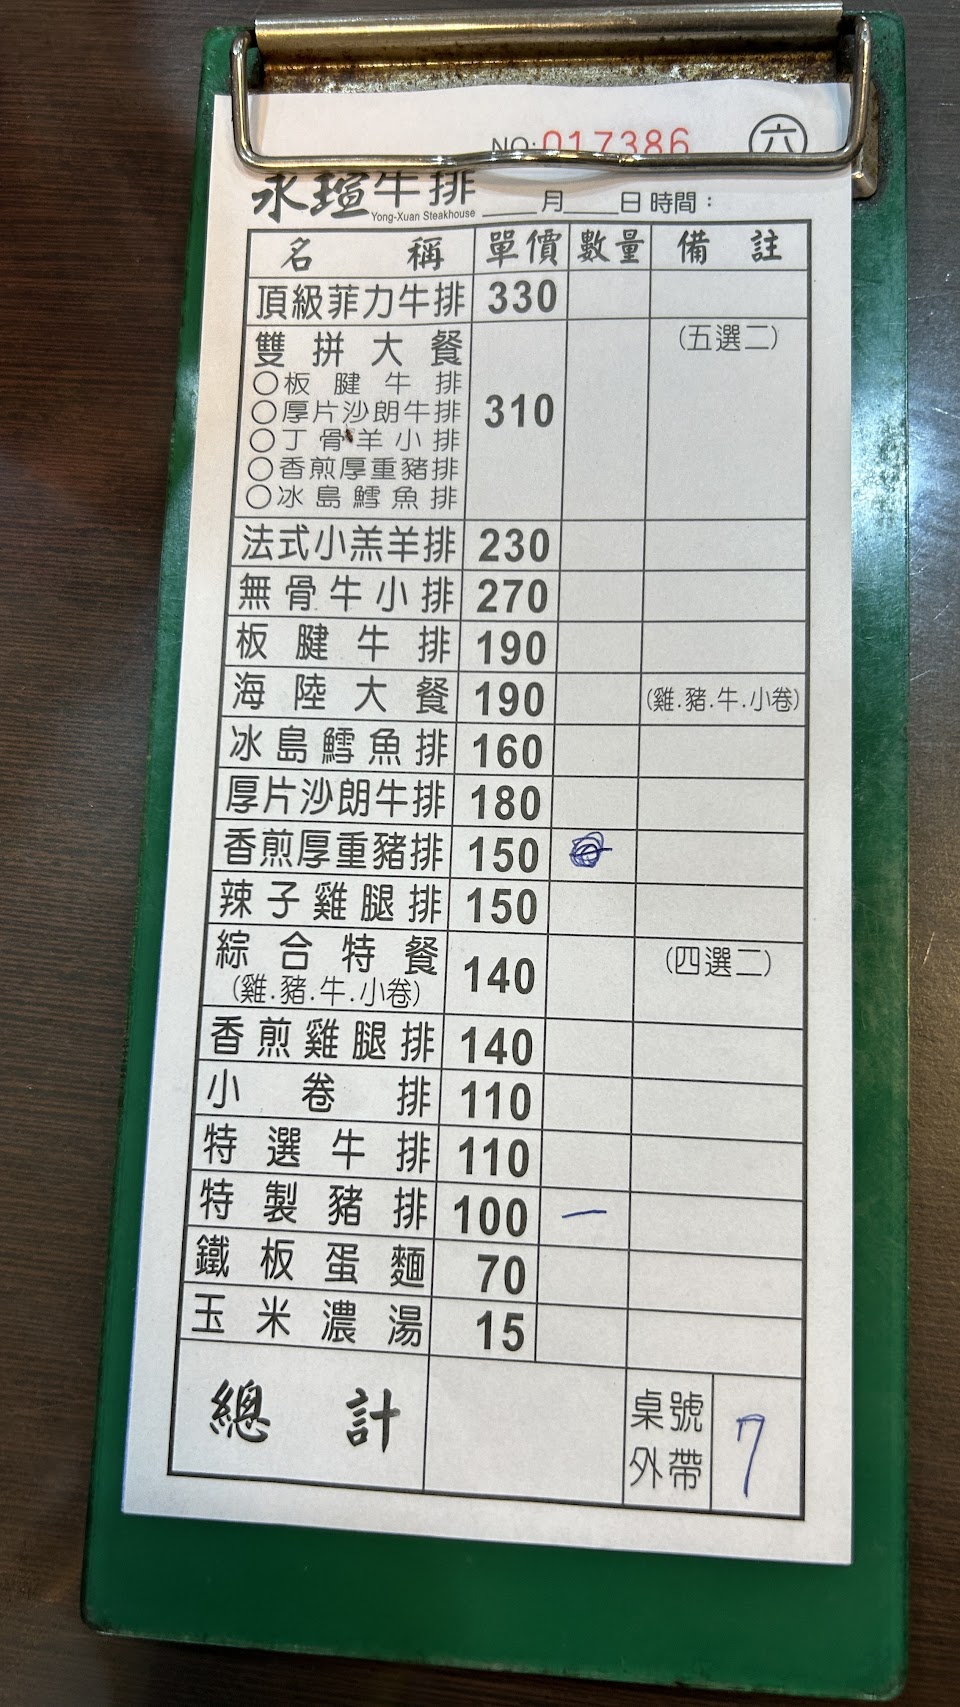 NO: 017386 六
永瑄牛排 Yong-Xuan Steakhouse 月 日 時間：
名稱 單價 數量 備註
頂級菲力牛排 330
雙拼大餐 310 (五選二)
○板腱牛排
○厚片沙朗牛排
○丁骨羊小排
○香煎厚重豬排
○冰島鱈魚排
法式小羔羊排 230
無骨牛小排 270
板腱牛排 190
海陸大餐 190 (雞.豬.牛.小卷)
冰島鱈魚排 160
厚片沙朗牛排 180
香煎厚重豬排 150
辣子雞腿排 150
綜合特餐 140 (四選二)
(雞.豬.牛.小卷)
香煎雞腿排 140
小卷排 110
特選牛排 110
特製豬排 100 一
鐵板蛋麵 70
玉米濃湯 15
總計 桌號 7
外帶